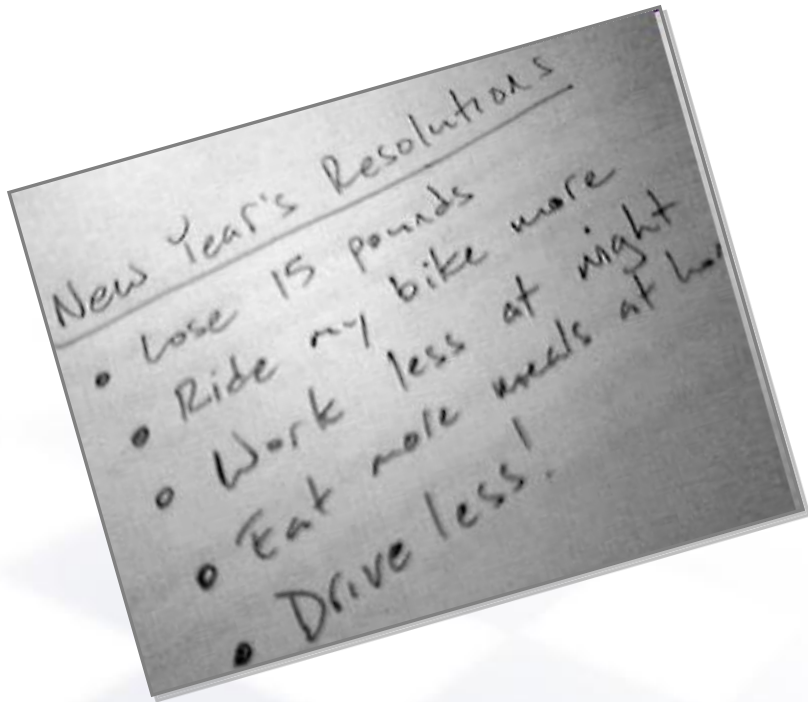 New Year's Resolutions
• Lose 15 pounds
• Ride my bike more
• Work less at night
• Eat more meals at
• Drive less!